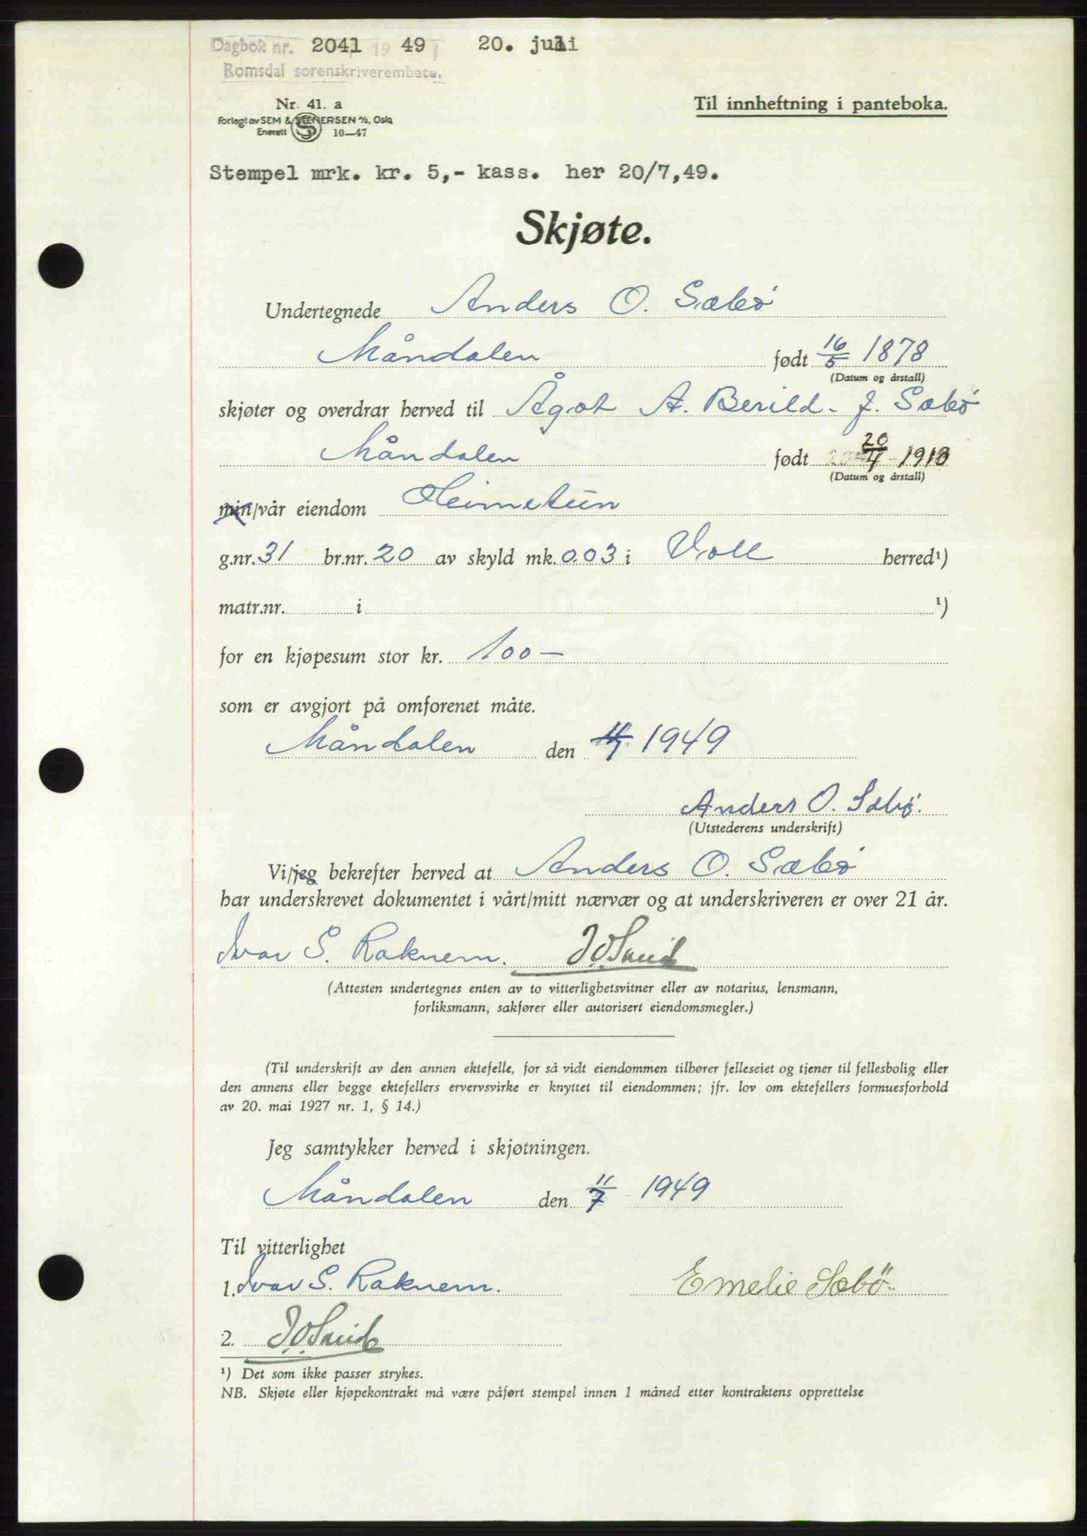 Dagbok nr. 2041 19 49 20. juli
Romsdal sorenskriverembete.
Nr. 41. a
Forlagt av SEM & STENERSEN A/S, Oslo
Enerett S 10—47
Til innheftning i panteboka.
Stempel mrk. kr. 5,- kass. her 20/7,49.
Skjøte.
Undertegnede Anders O. Sæbø
Måndalen født 16/5 1878
(Datum og årstall)
skjøter og overdrar herved til Ågot A. Berild. f. Sæbø
Måndalen født 20/4 1913
(Datum og årstall)
min/vår eiendom Heimetun
g.nr. 31 br.nr. 20 av skyld mk. 0.03 i Voll herred¹)
matr.nr. i ¹)
for en kjøpesum stor kr. 100 —
som er avgjort på omforenet måte.
Måndalen den 11/7 1949
Anders O. Sæbø.
(Utstederens underskrift)
Vi/jeg bekrefter herved at Anders O. Sæbø
har underskrevet dokumentet i vårt/mitt nærvær og at underskriveren er over 21 år.
Ivar S. Raknem.
(Attesten undertegnes enten av to vitterlighetsvitner eller av notarius, lensmann,
forliksmann, sakfører eller autorisert eiendomsmegler.)
(Til underskrift av den annen ektefelle, for så vidt eiendommen tilhører felleseiet og tjener til fellesbolig eller
den annens eller begge ektefellers ervervsvirke er knyttet til eiendommen; jfr. lov om ektefellers formuesforhold
av 20. mai 1927 nr. 1, § 14.)
Jeg samtykker herved i skjøtningen.
Måndalen den 11/7 1949
Til vitterlighet
1. Ivar S. Raknem. Emelie Sæbø
2.
¹) Det som ikke passer strykes.
NB. Skjøte eller kjøpekontrakt må være påført stempel innen 1 måned etter kontraktens opprettelse